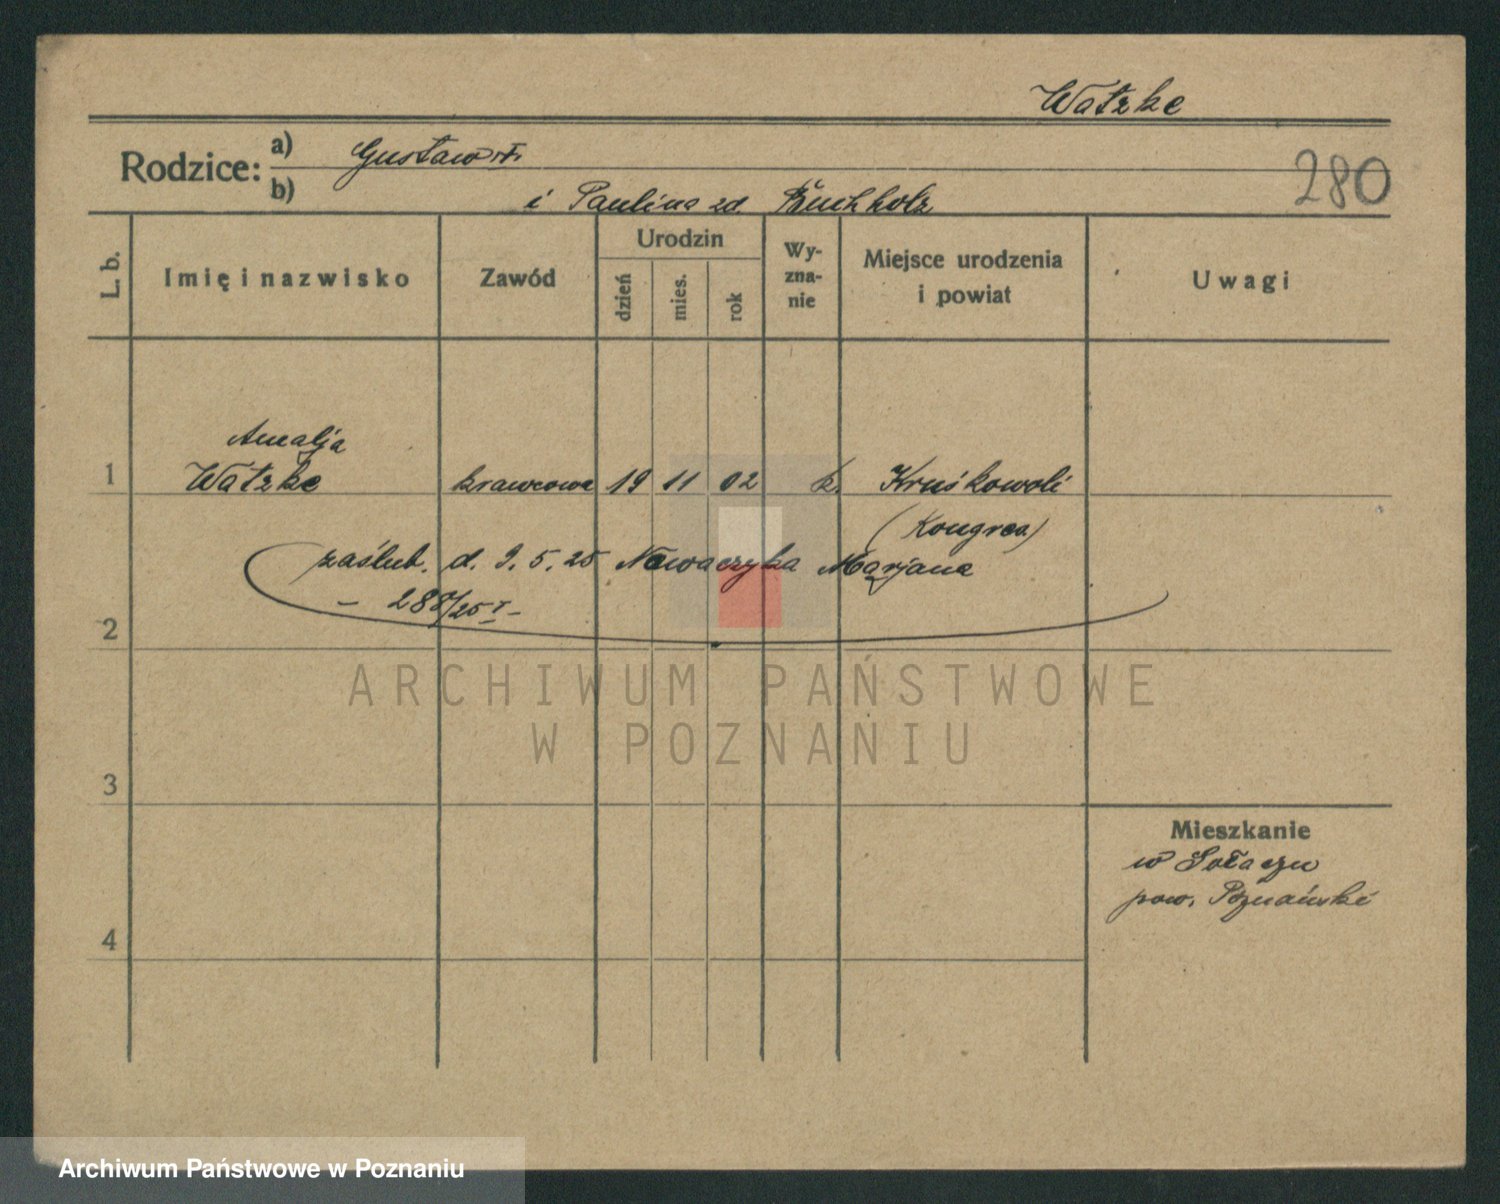 Watzke
Rodzice: a) Gustaw
b) i Paulina zd. Buchholz
280
L. b. Imię i nazwisko Zawód Urodzin dzień mies. rok Wy-zna-nie Miejsce urodzenia i powiat Uwagi
Amalja
1 Watzke krawcowa 19 11 02 k. Kruśkowoli
(Kongres)
zaślub. d. 9. 5. 25 Nowaczyka Marjana
2
ARCHIWUM PAŃSTWOWE
W POZNANIU
3
Mieszkanie
w Sołaczu
pow. Poznański
4
Archiwum Państwowe w Poznaniu